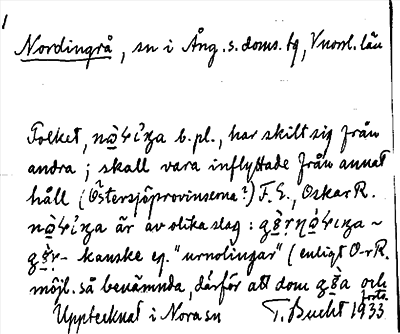 1
Nordingrå, sn i Ång. s. doms. hg, Vnorrl. län
Folket, b. pl., har skilt sig från
andra; skall vara inflyttade från annat
håll (Östersjöprovinserna?) F. E., Oskar R.
är av olika slag:
kanske eg. "urnolingar" (enligt O-r R.
möjl. så benämnda, därför att dom och
Upptecknat i Nora sn T. Bucht 1933